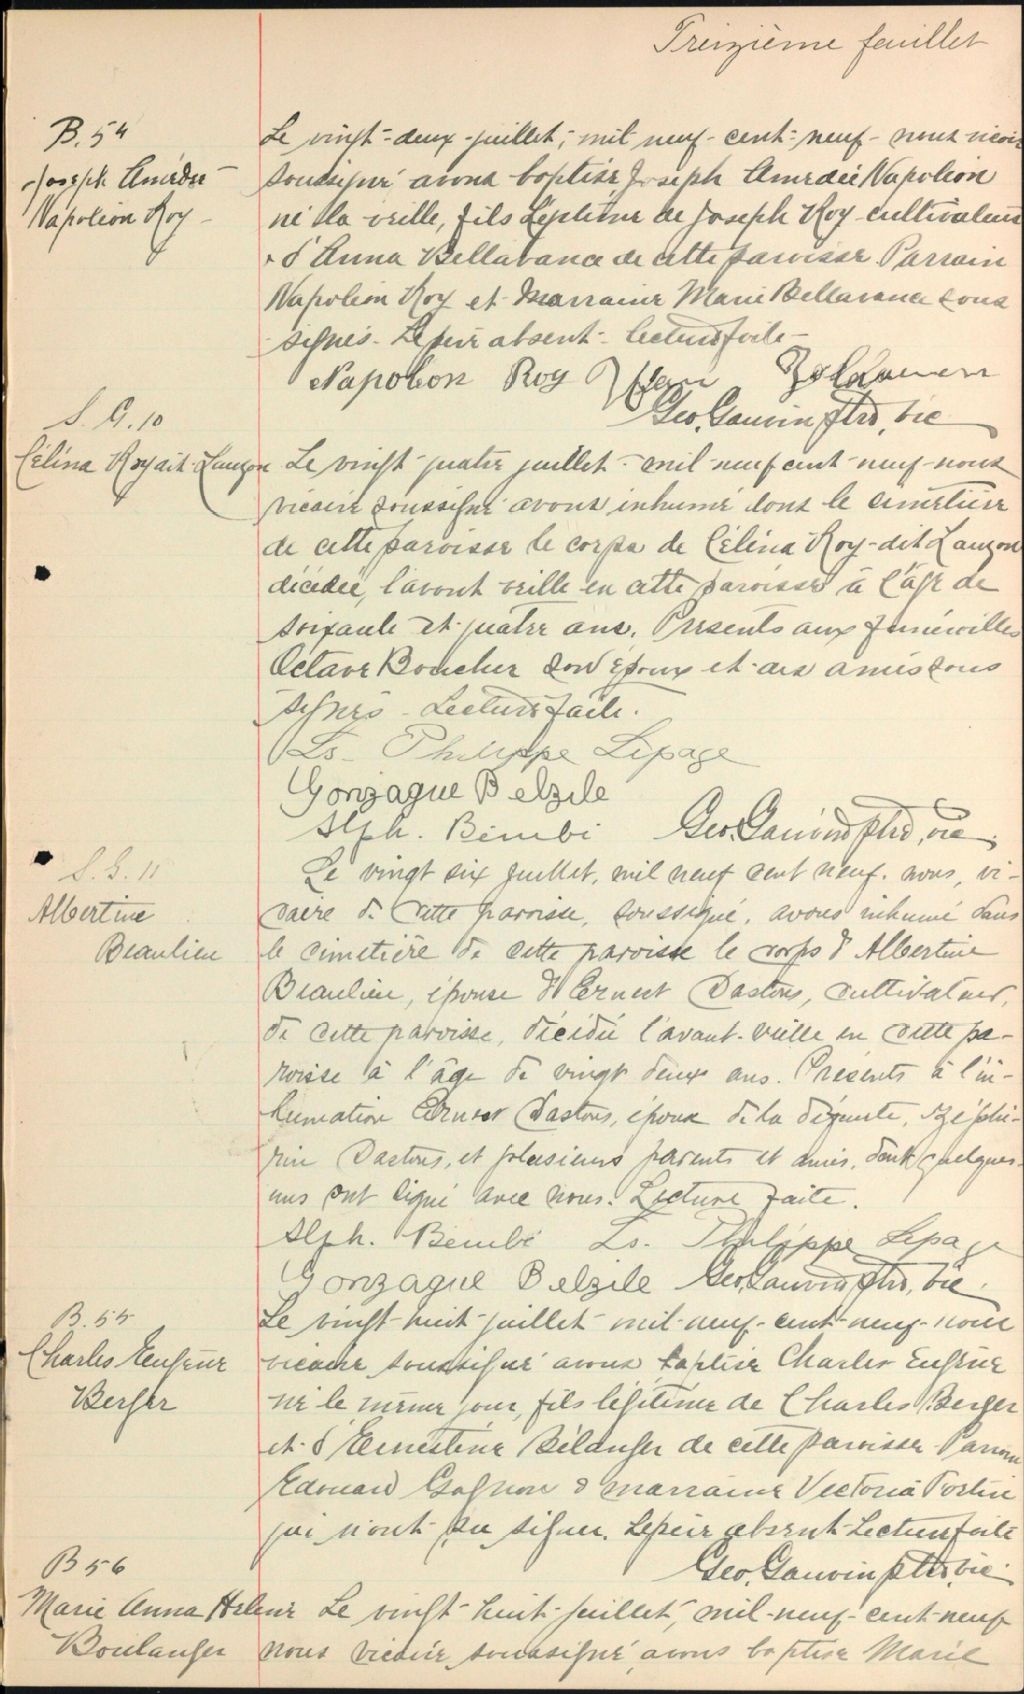 Treizième feuillet
B. 54
Joseph Amédée
Napoléon Roy
Le vingt-deux-juillet, mil neuf-cent-neuf-nous vicaire
soussigné avons baptisé Joseph Amédée Napoléon
né la veille, fils légitime de Joseph Roy cultivateur
& d'Anna Bellavance de cette paroisse Parrain
Napoléon Roy et Marraine Marie Bellavance sous
signés. Le père absent. Lecture faite
Napoleon Roy
Geo. Gauvin ptre, vic
S. G. 10
Célina Roy dit Lauzon
Le vingt-quatre juillet-mil-neuf cent-neuf-nous
vicaire soussigné avons inhumé dans le cimetière
de cette paroisse le corps de Célina Roy-dit Lauzon
décédée, l'avant veille en cette paroisse à l'âge de
soixante et quatre ans. Présents aux funérailles
Octave Boucher son époux et des amis sous
signés. Lecture faite.
Ls-Philippe Lepage
Gonzague Belzile
Alph. Bérubé Geo. Gauvin ptre, vic.
S. G. 11
Albertine
Beaulieu
Le vingt six juillet, mil neuf cent neuf. nous, vi-
caire de cette paroisse, soussigné, avons inhumé dans
le cimetière de cette paroisse le corps d'Albertine
Beaulieu, épouse d'Ernest Dastous, cultivateur,
de cette paroisse, décédée l'avant-veille en cette pa-
roisse à l'âge de vingt deux ans. Présents à l'in-
humation Ernest Dastous, époux de la défunte, Zéphi-
rin Dastous, et plusieurs parents et amis, dont quelques
uns ont signé avec nous. Lecture faite.
Alph. Bérubé Ls. Philippe Lepage
Gonzague Belzile Geo. Gauvin ptre, vic.
B. 55
Charles Eugène
Berger
Le vingt-huit-juillet-mil-neuf-cent-neuf-nous
vicaire soussigné avons baptisé Charles Eugène
né le même jour, fils légitime de Charles Berger
et d'Ernestine Bélanger de cette paroisse. Parrain
Edouard Gagnon & marraine Victoria Fortin
qui n'ont su signer. Le père absent. Lecture faite
Geo. Gauvin ptre, vic
B 56
Marie Anna Helene
Boulanger
Le vingt-huit-juillet, mil-neuf-cent-neuf
nous vicaire soussigné, avons baptisé Marie